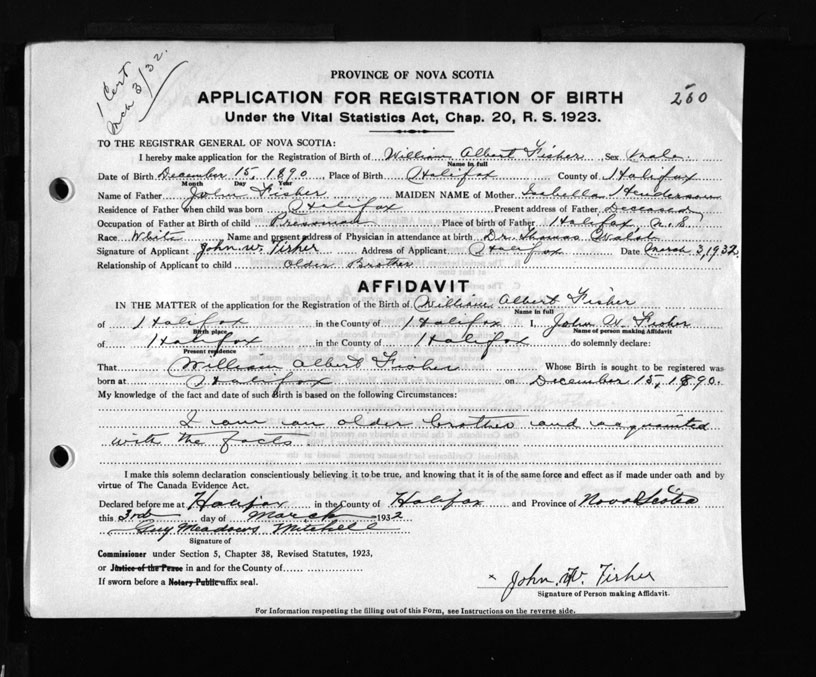 1 Cert
Mch 3/32.
PROVINCE OF NOVA SCOTIA
APPLICATION FOR REGISTRATION OF BIRTH
260
Under the Vital Statistics Act, Chap. 20, R. S. 1923.
TO THE REGISTRAR GENERAL OF NOVA SCOTIA:
I hereby make application for the Registration of Birth of William Albert Fisher Sex Male
Name in full
Date of Birth December 15, 1890 Place of Birth Halifax County of Halifax
Month Day Year
Name of Father John Fisher MAIDEN NAME of Mother Isabella Henderson
Residence of Father when child was born Halifax Present address of Father Deceased
Occupation of Father at Birth of child Pressman Place of birth of Father Halifax, N.S.
Race White Name and present address of Physician in attendance at birth Dr. Thomas Walsh
Signature of Applicant John W. Fisher Address of Applicant Halifax Date March 3, 1932.
Relationship of Applicant to child Older Brother
AFFIDAVIT
IN THE MATTER of the application for the Registration of the Birth of William Albert Fisher
Name in full
of Halifax in the County of Halifax I, John W. Fisher
Birth place Name of person making Affidavit
of Halifax in the County of Halifax do solemnly declare:
Present residence
That William Albert Fisher Whose Birth is sought to be registered was
born at Halifax on December 15, 1890.
My knowledge of the fact and date of such Birth is based on the following Circumstances:
I am an older brother and acquainted
with the facts.
I make this solemn declaration conscientiously believing it to be true, and knowing that it is of the same force and effect as if made under oath and by
virtue of The Canada Evidence Act.
Declared before me at Halifax in the County of Halifax and Province of Nova Scotia
this 3rd day of March 1932
Guy Meadows Mitchell
Signature of
Commissioner under Section 5, Chapter 38, Revised Statutes, 1923,
or Justice of the Peace in and for the County of
If sworn before a Notary Public affix seal.
x John W. Fisher
Signature of Person making Affidavit.
For Information respecting the filling out of this Form, see Instructions on the reverse side.